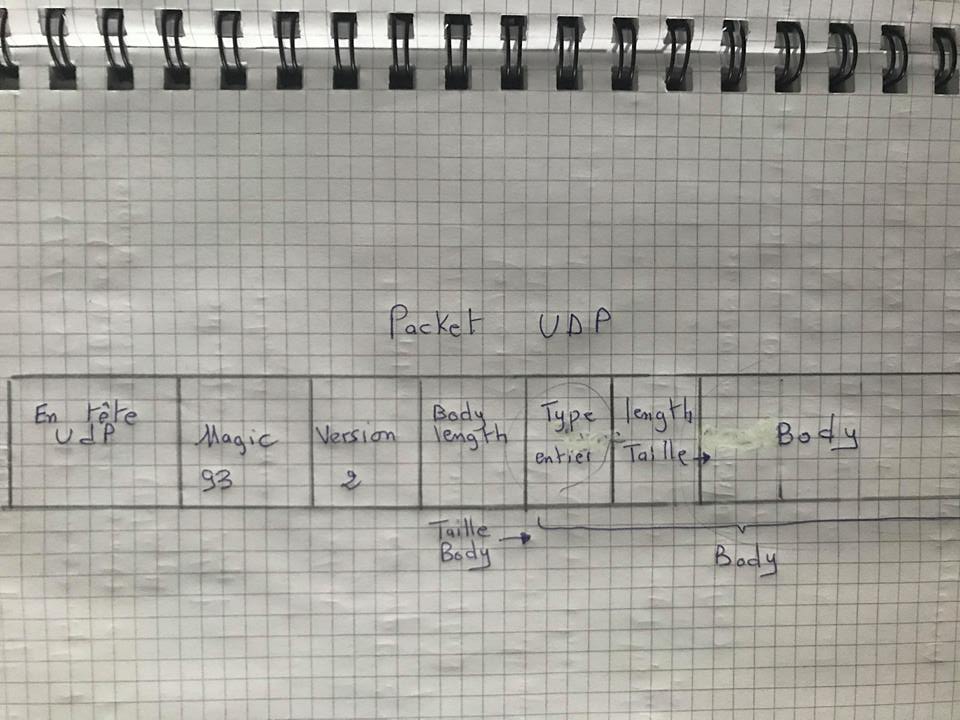 Packet UDP
En tête
UdP
Magic
93
Version
2
Body
length
Type
entier
length
Taille →
Body
Taille
Body →
Body